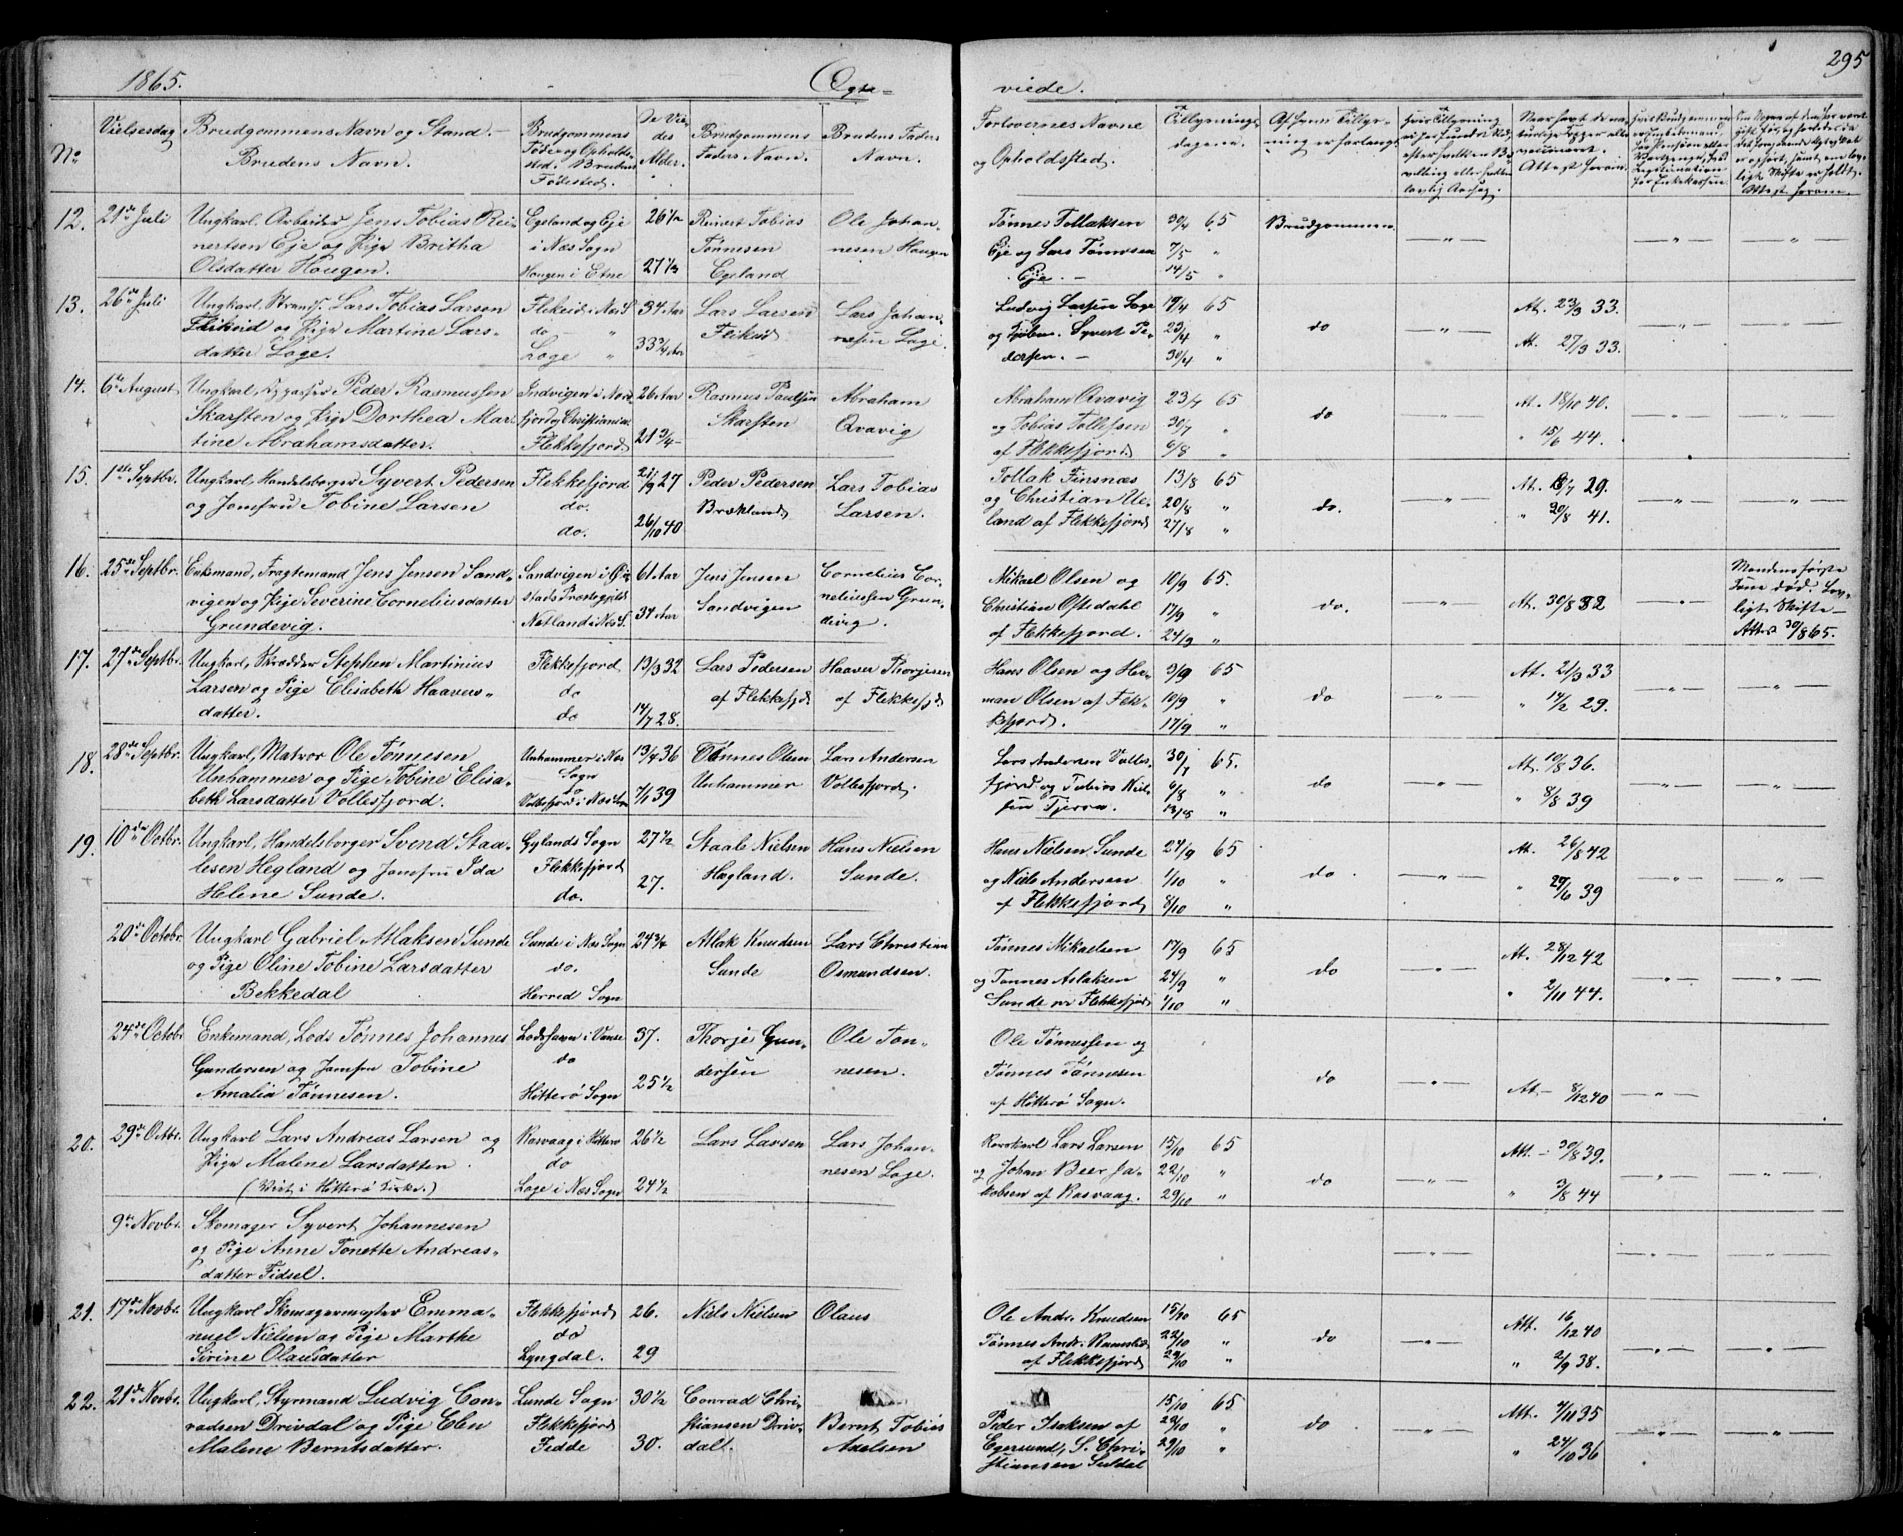 1865.
Ægte-
viede.
295
No
Vielsesdag
Brudgommens Navn og Stand. –
Brudens Navn.
Brudgommens
Føde og Opholds-
sted. Brudens
Fødested.
De Vie-
des
Alder.
Brudgommens
Faders Navn.
Brudens Faders
Navn.
Forlovernes Navne
og Opholdssted.
Tillysnings-
dagene.
Af hvem Tillys-
ning er forlangt.
12. 21de Juli
Ungkarl. Arbeider Jens Tobias Rei-
nertsen Eje og Pige Britha
Olsdatter Hougen.
Egeland og Eje
i Næs Sogn
Hougen i Etne
26 1/2
27 1/3
Reinert Tobias
Tønnesen
Egeland
Ole Johan-
nesen Hougen
Tønnes Tollaksen
Eje og Lars Tønnesen
Eje. –
30/4 65
7/5 "
14/5 "
Brudgommen.
13. 26de Juli
Ungkarl. Strands. Lars Tobias Larsen
Flikeid og Pige Martine Lars-
datter Loge.
Flikeid i Næs S.
do. "
Loge "
34 Aar
33 3/4 Aar
Lars Larsen
Flikeid
Lars Johan-
nesen Loge.
Ludvig Larsen Loge
og Kjøbm. Syvert Pe-
dersen. –
19/4 65
23/4 "
30/4 "
do
At. 23/3 33.
At. 27/3 33.
14. 6te August
Ungkarl, Peder Rasmussen
Skarsten og Pige Dorthea Mar-
tine Abrahamsdatter.
Indvigen i Nord
fjord og Christiansa.
Flekkefjord
26 Aar
21 3/4 –
Rasmus Paulsen
Skarsten
Abraham
Qvavig
Abraham Qvavig
og Tobias Tollefsen
af Flekkefjord
23/7 65
30/7 "
6/8 "
do
At. 18/10 40.
" 15/6 44.
15. 1ste Septbr.
Ungkarl, Handelsborger Syvert Pedersen
og Jomfru Tobine Larsen
Flekkefjord
do.
do.
21/9 27
26/10 40
Peder Pedersen
Brækland
Lars Tobias
Larsen.
Tollak Finsnæs
og Christian Ue-
land af Flekkefjord
13/8 65
20/8 "
27/8 "
do.
At. 8/7 29.
" 30/8 41.
16. 25de Septbr.
Enkemand, Fragtemand Jens Jensen Sand-
vigen og Pige Severine Corneliusdatter
Grundevig.
Sandvigen i Øie
stads Præstegjeld
Netland i Næs S.
61 Aar
34 Aar
Jens Jensen
Sandvigen
Cornelius Cor-
neliussen Grun-
devig.
Mikael Olsen og
Christian Oftedahl
af Flekkefjord.
10/9 65.
17/9 "
24/9 "
do.
At. 30/8 32
Mandens første
Kone død. Lov-
ligt Skifte –
Attest 30/8 65.
17. 27de Septbr.
Ungkarl, Skrædder Stephen Martinius
Larsen og Pige Elisabeth Haavers-
datter.
Flekkefjord
do
do
13/3 32
14/7 28.
Lars Pedersen
af Flekkefjd
Haaver Thorjesen
af Flekkefjd
Hans Olsen og Her-
man Olsen af Flek-
kefjord.
3/9 65
10/9 "
17/9 "
do
At. 21/3 33
" 14/2 29.
18. 28de Septbr.
Ungkarl, Matros Ole Tønnesen
Unhammer og Pige Tobine Elisa-
beth Larsdatter Vollesfjord.
Unhammer i Næs
Sogn
do
Vollesfjord i Næs Sogn
13/4 36
7/1 39
Tønnes Olsen
Unhammer
Lars Andersen
Vollesfjord.
Lars Andersen Volles-
fjord og Tobias Niel-
sen Tjersa.
30/7 65.
6/8 "
13/8 "
do
At. 10/8 36.
" 8/8 39
19. 10de Octbr.
Ungkarl, Handelsborger Svend Staa-
lesen Hegland og Jomfru Ida
Helene Sunde.
Gylands Sogn
Flekkefjord
do.
27 1/2
27.
Staale Nielsen
Hægland.
Hans Nielsen
Sunde.
Hans Nielsen Sunde
og Niels Andersen
af Flekkefjord
24/9 65
1/10 "
8/10 "
do
At. 26/8 42
" 29/6 39
20de Octobr.
Ungkarl Gabriel Atlaksen Sunde
og Pige Oline Tobine Larsdatter
Bekkedal
Sunde i Næs Sogn
do.
Herred Sogn
24 3/4
Atlak Knudsen
Sunde
Lars Christian
Osmundsen.
Tønnes Mikaelsen
og Tønnes Aslaksen
Sunde pr Flekkefjord
17/9 65
24/9 "
1/10 "
do
At. 28/12 42
" 2/11 44.
24de Octobr
Enkemand, Lods Tønnes Johannes
Gundersen og Jomfru Tobine
Amalia Tønnesen.
Lodshavn i Vanse
do
Hitterø Sogn
37.
25 1/2
Thorje Gun-
dersen
Ole Tøn-
nesen.
Ole Tønnessen og
Tønnes Tønnesen
af Hitterø Sogn.
do
At – 8/12 40
20. 29de Octbr.
Ungkarl Lars Andreas Larsen og
Pige Malene Larsdatter.
(Viet i Hitterø Kirke.)
Rasvaag i Hitterø
do
Loge i Næs Sogn
26 1/2
24 1/2
Lars Larsen
Lars Johan-
nesen Loge.
Lars Larsen
og Johan Beer Ja-
kobsen af Rasvaag.
15/10 65
22/10 "
29/10 "
do
Att. – 30/8 39.
" 3/8 44
9de Novbr.
Skomager Syvert Johannesen
og Pige Anne Tonette Andreas-
datter Fidsel.
21. 17de Novbr.
Ungkarl Skomagermester Emma-
nuel Nielsen og Pige Marthe
Sirine Olausdatter
Flekkefjord
do
Lyngdal.
26.
29
Niels Nielsen
Olaus
Ole Andr. Knudsen
Tønnes Andr.
af Flekkefjord
15/10 65
22/10 "
29/10 "
do
Att. 16/12 40
" 2/9 38.
22. 21de Novbr.
Ungkarl, Styrmand Ludvig Con-
radsen Drivdal og Pige Elen
Malene Berntsdatter.
Lunde Sogn
Flekkefjord
Fedde
30 1/2
30.
Conrad Chri-
stiansen Driv-
dal.
Bernt Tobias
Axelsen
Peder Isaksen af
Egersund, S. Chri-
stiansen Suldal
15/10 65
22/10 "
29/10 "
do
Att. 4/11 35
" 24/10 36